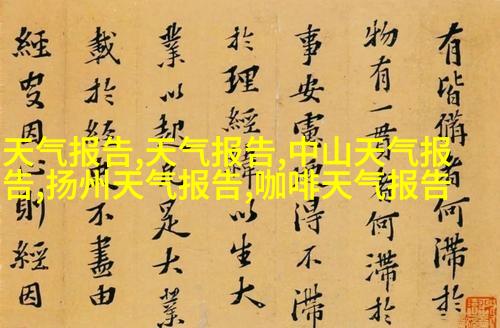 天气报告,天气报告,中山天气报
告,扬州天气报告,咖啡天气报告
有皆備者何滯於
物有一何滯於
事安慮得不滯
於理經緯以生大
業以起是大業
載於不盡由
經因則經因